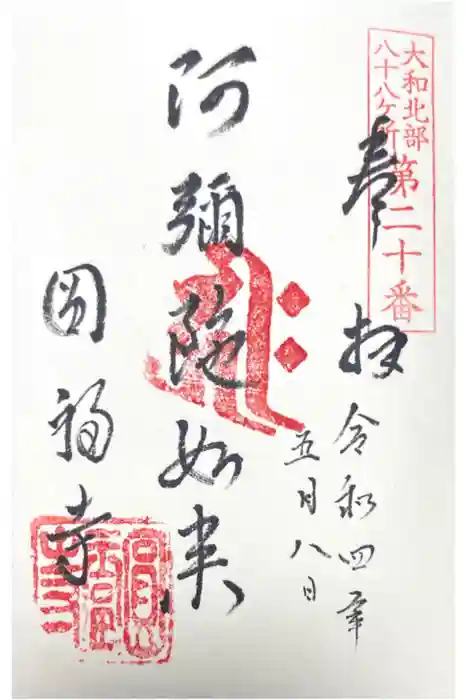 大和北部
八十八ケ所
第二十番
奉拝
令和四年
五月八日
阿彌陀如来
圓福寺
圓福寺